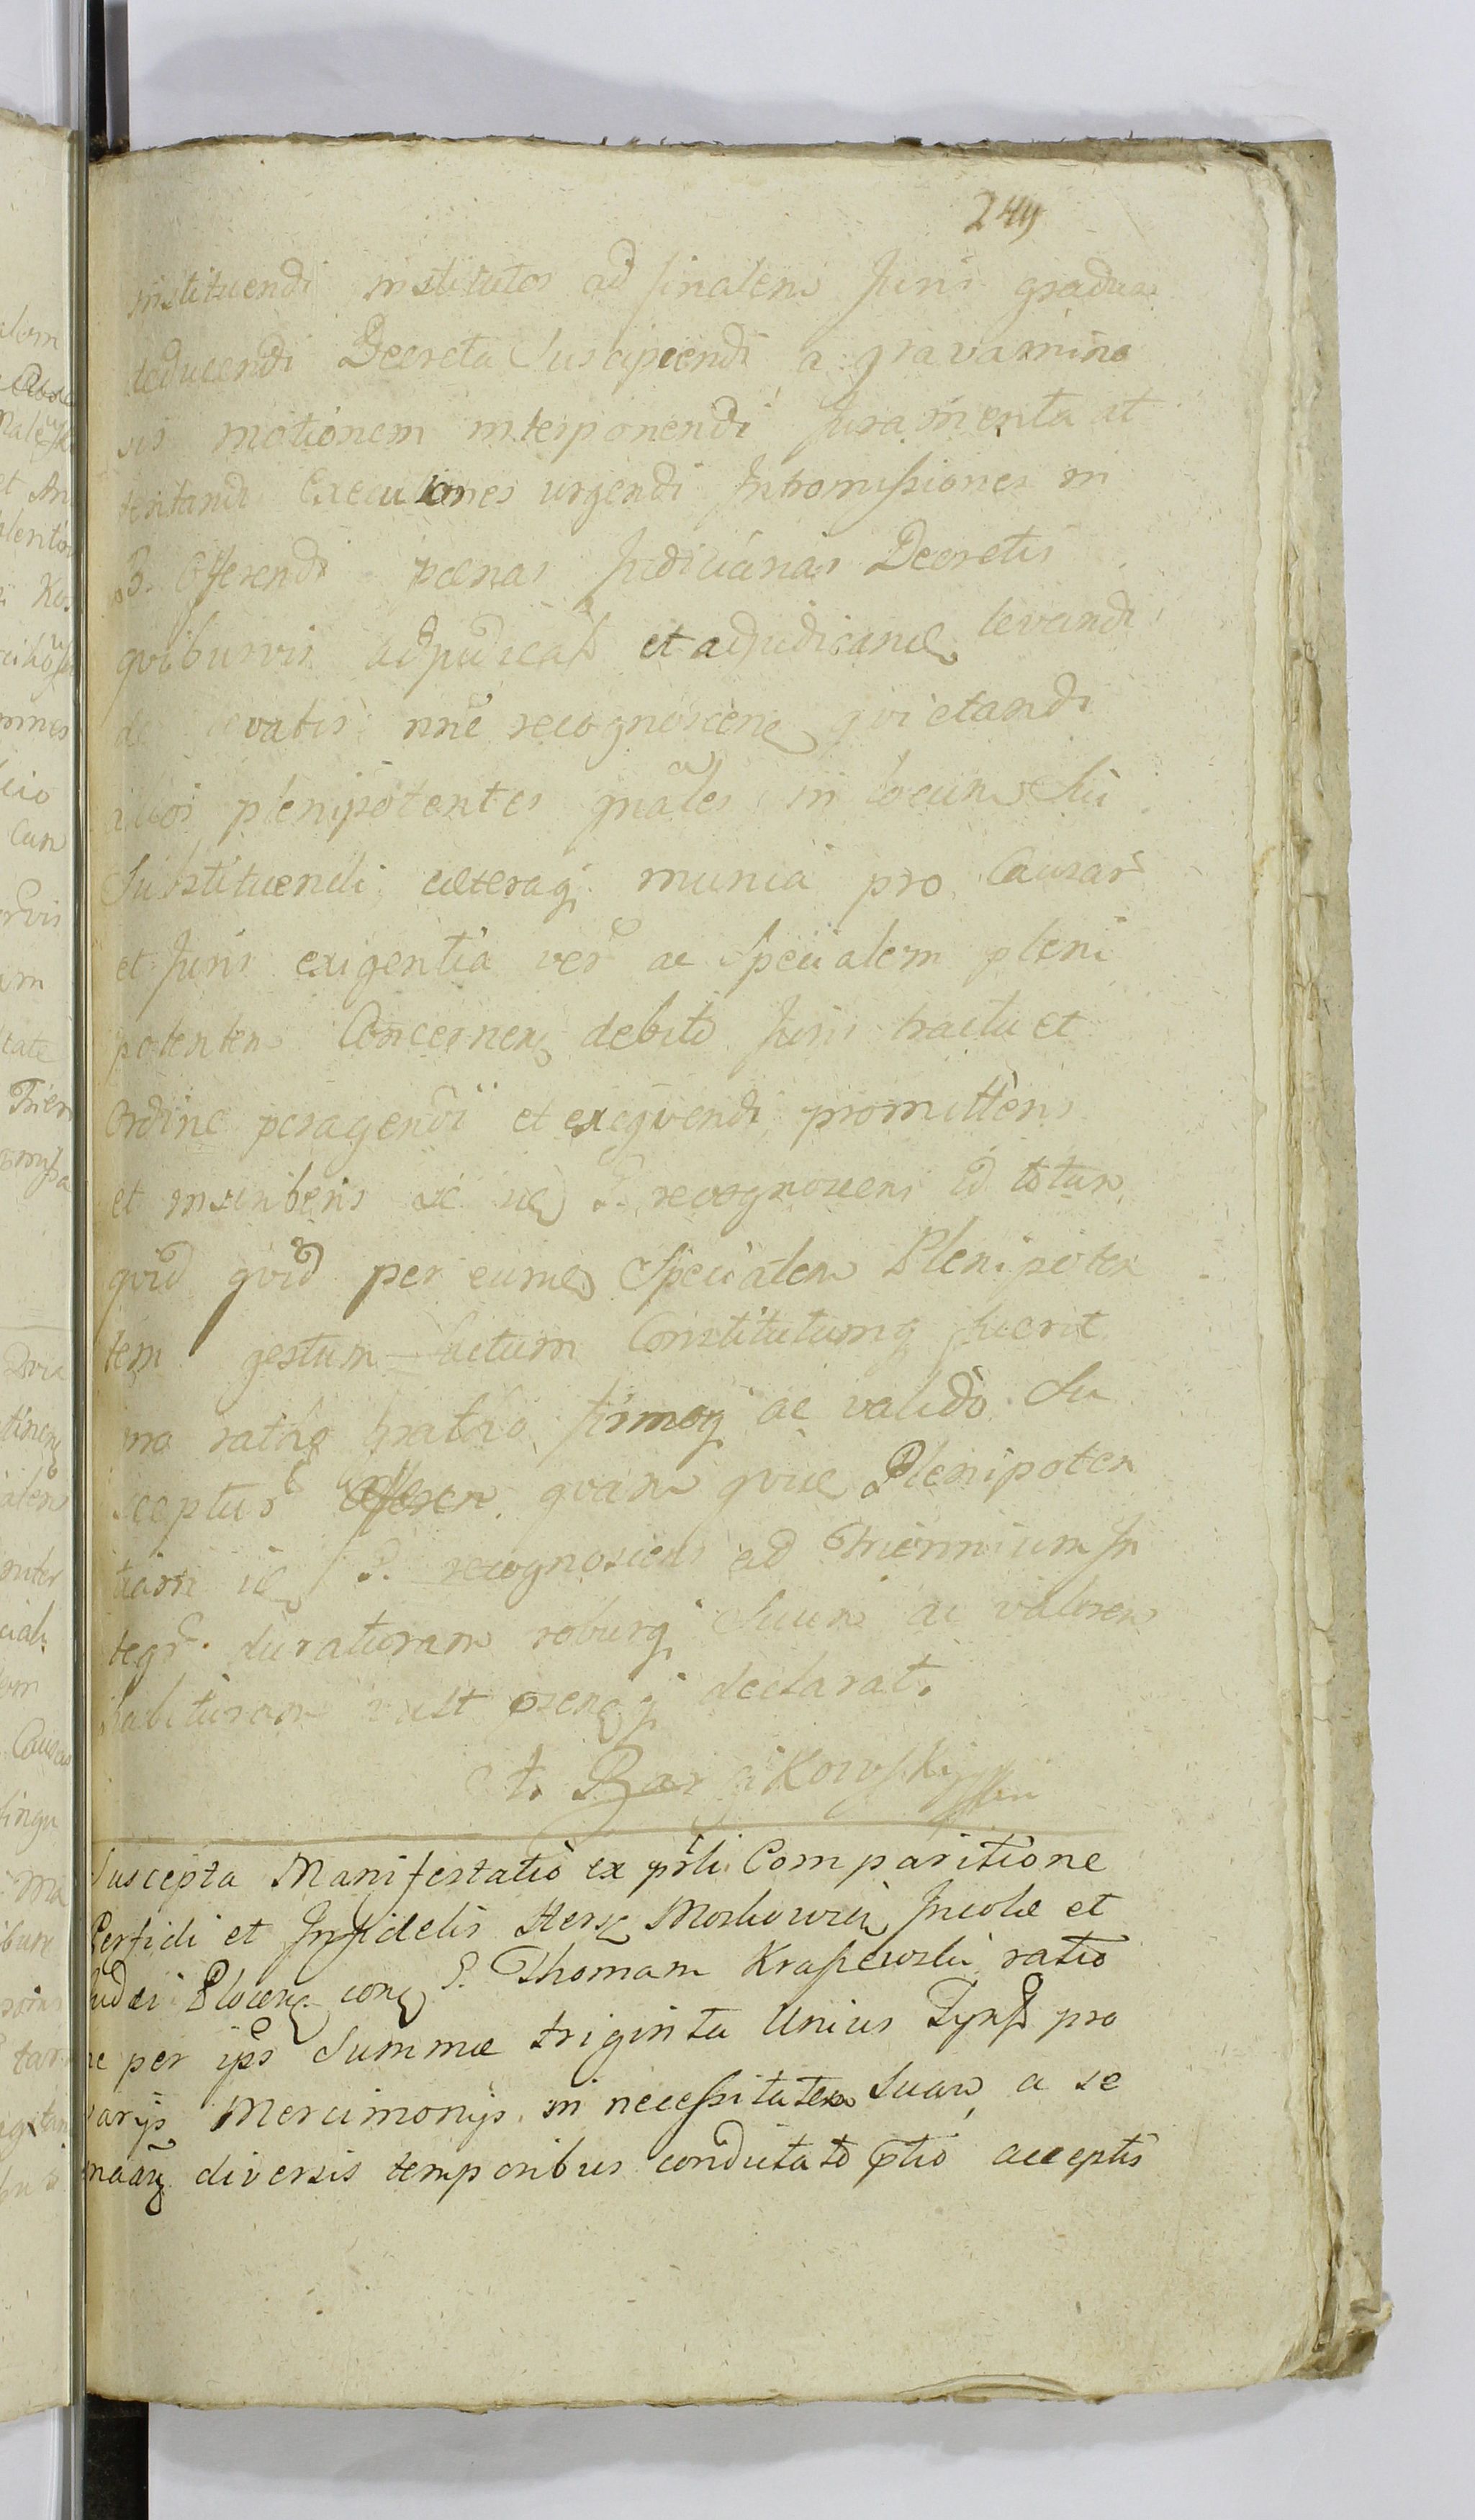 249
instituendi institutos ad finalem Juris gradum
deducendi Decreta Suscipiendi a gravamine
sis motionem interponendi Juramenta at
tentandi Execu͞iones urgendi Intromissiones in
B. Offerendi pænas Judiciarias Decretis
quibusvis adjudicat et adjudicand levandi
de levatis nñe recognoscen quietandi
alios plenipotentes gnãles in locum Sui
Substituendi cæteraq munia pro Causar
et Juris exigentia ver ac Specialem pleni
potentem Concernen debito Juris tractu et
Ordine peragendi et exequendi promittens
et inscribens se P. recognoscens id totum
quid quid per eumd Specialem Plenipoten
tem gestum actum Constitutumq fuerit
pro ratho grat͞o firmoq ac valido Su
scepturũ quam quid Plenipoten
tiam P. recognoscens ad Triennium In
tegr. duraturam roburq Suum ac valorem
habituram vult declarat.
Suscepta Manifestatio ex prli Comparitione
Perfidi et Infidelis Hersz Moskowicz Incolæ et
Judæi Plocen con P. Thomam Krasewski ratio
ne per ips Summæ triginta Unius Tynf pro
varijs Mercimonijs in necessitatem Suam a se
diversis temporibus acceptis